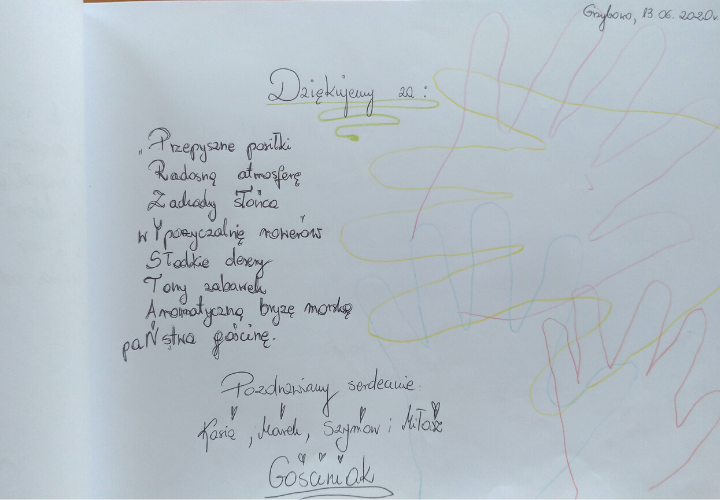 Grzybowo, 13.06.2020r.
Dziękujemy za:
"Przepyszne posiłki
Radosną atmosferę
Zachody słońca
wYpożyczalnię rowerów
Słodkie desery
Tony zabawek
Aromatyczną bryzę morską
paŃstwa gościnę.
Pozdrawiamy serdecznie:
Kasia, Marek, Szymon i Miłosz
Gościniak